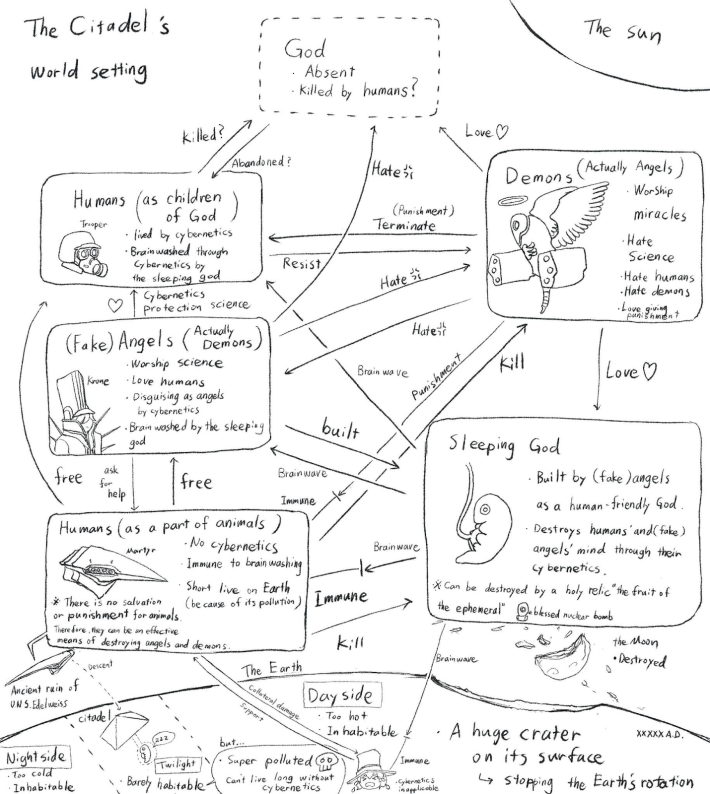 The Citadel's
world setting
The sun
God
· Absent
· Killed by humans?
Killed?
Abandoned?
Hate
Love♡
Humans (as children
of God)
Trooper
· lived by cybernetics
· Brainwashed through
Cybernetics by
the sleeping god
(Punishment)
Terminate
Resist
Demons (Actually Angels)
· Worship
miracles
· Hate
Science
· Hate humans
· Hate demons
· Love giving
punishment
♡
Cybernetics
protection science
Hate
Hate
(Fake) Angels (Actually
Demons)
· Worship science
· Love humans
· Disguising as angels
by cybernetics
· Brain washed by the sleeping
god
Krone
Brain wave
Punishment
Kill
Love♡
built
Brainwave
Immune
free
ask
for
help
free
Sleeping God
· Built by (fake) angels
as a human-friendly God.
· Destroys humans' and (fake)
angels' mind through their
cybernetics.
※ Can be destroyed by a holy relic "the fruit of
the ephemeral"
=blessed nuclear bomb
Humans (as a part of animals)
Martyr
· No cybernetics
· Immune to brainwashing
· Short live on Earth
(because of its pollution)
※ There is no salvation
or punishment for animals.
Therefore, they can be an effective
means of destroying angels and demons.
Brainwave
Immune
Kill
the Moon
· Destroyed
Brainwave
Descent
Ancient ruin of
U.N.S. Edelweiss
The Earth
Collateral damage
Support
Day side
· Too hot
· Inhabitable
citadel
zzz
Twilight
· Barely habitable
but...
· Super polluted
Can't live long without
cybernetics
Immune
· Cybernetics
inapplicable
Night side
· Too cold
· Inhabitable
· A huge crater
on its surface
↳ stopping the Earth's rotation
XXXXX A.D.